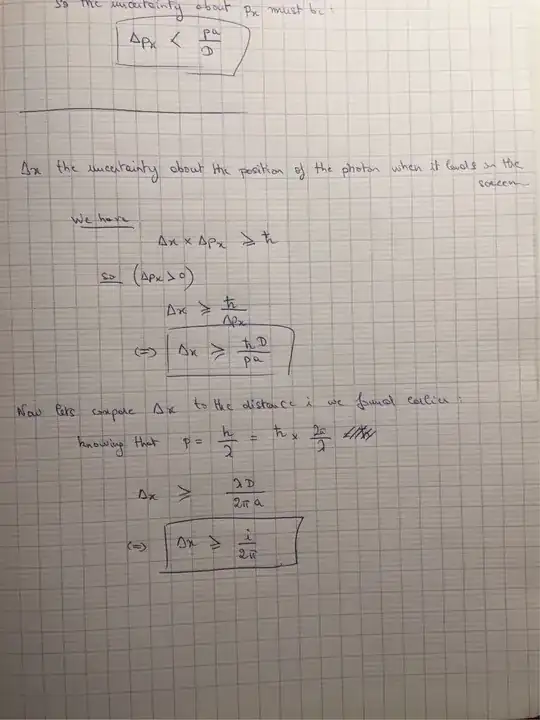 so the uncertainty about px must be:
Δpx < pa/D
Δx the uncertainty about the position of the photon when it lands on the
screen
We have
Δx × Δpx ⩾ ħ
so (Δpx > 0)
Δx ⩾ ħ/Δpx
(=) Δx ⩾ ħD/pa
Now lets compare Δx to the distance i we found earlier:
knowing that p = h/λ = ħ × 2π/λ
Δx ⩾ λD/2πa
(=) Δx ⩾ i/2π